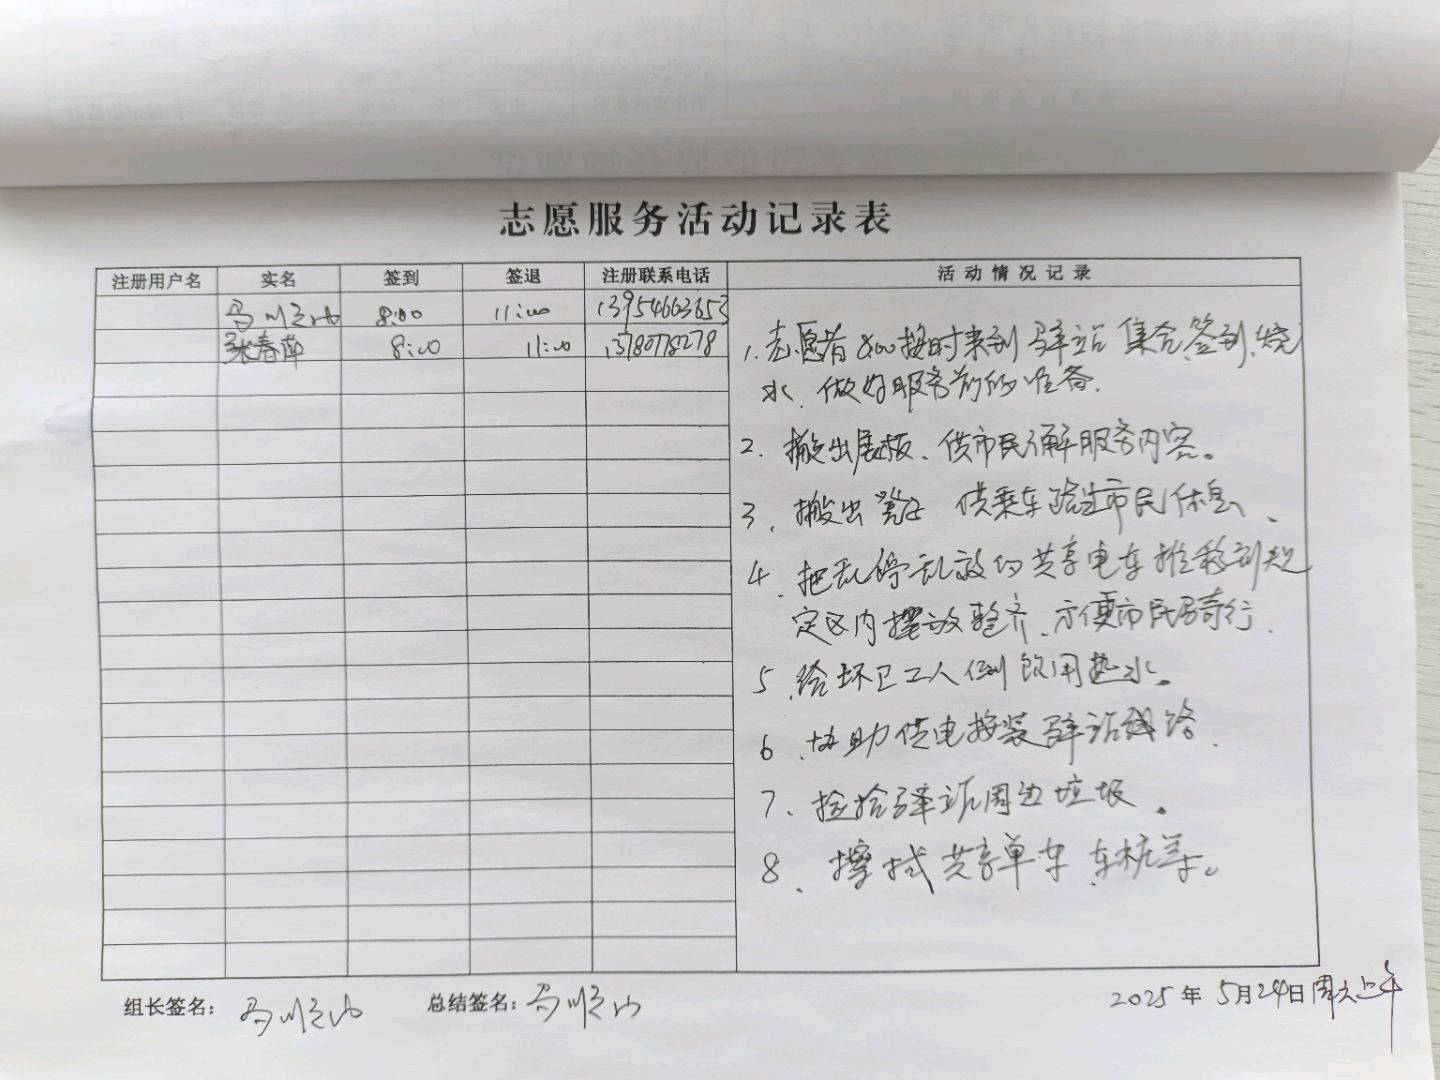 志愿服务活动记录表
注册用户名 实名 签到 签退 注册联系电话 活动情况记录
马顺山 8:00 11:00 13954663653
张春萍 8:00 11:00 13780778278
1、志愿者8:00按时来到驿站集合、签到、烧
水、做好服务前的准备.
2、搬出展板、供市民了解服务内容。
3、搬出凳子 供乘车路过市民休息、
4、把乱停乱放的共享电车推移到规
定区内摆放整齐、方便市民骑行.
5、给环卫工人倒饮用热水。
6、协助供电接装驿站线路.
7、捡拾驿站周边垃圾。
8、擦拭共享单车、车桩等。
组长签名: 马顺山 总结签名: 马顺山 2025年5月24日周六上午